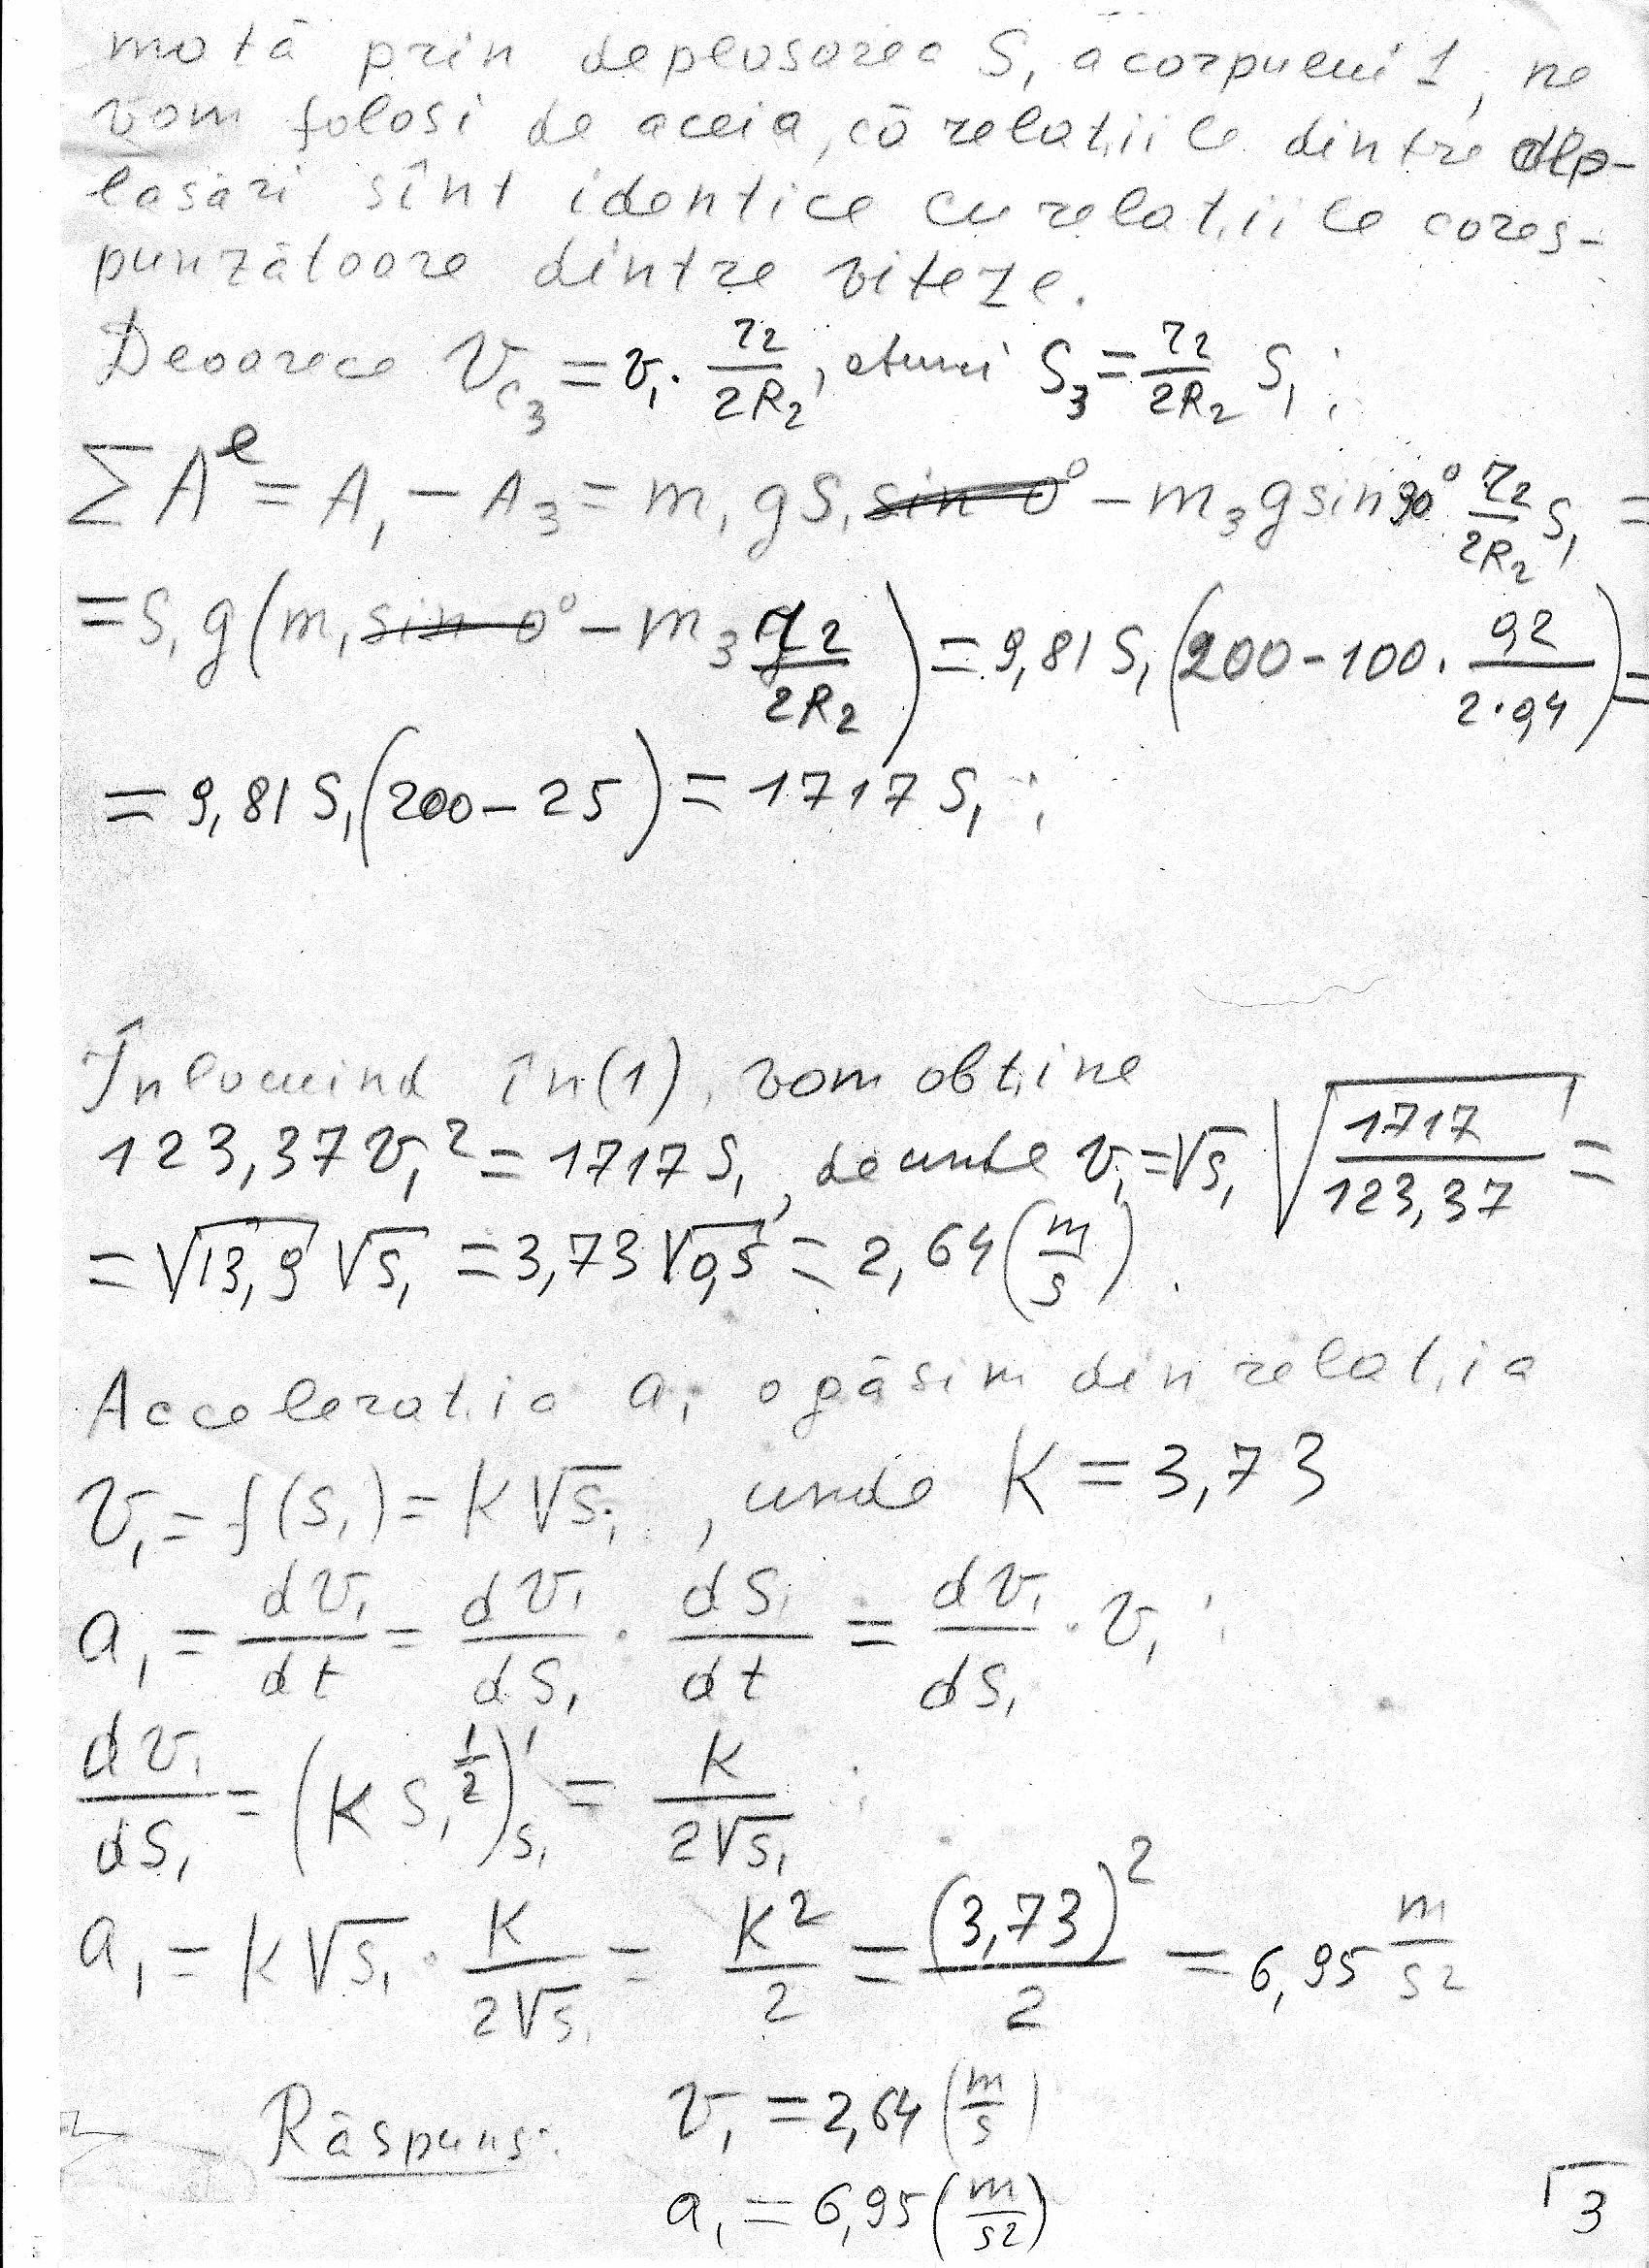 mată prin deplasarea S₁ a corpului 1, ne
vom folosi de aceia, că relațiile dintre dep-
lasări sînt identice cu relațiile cores-
punzătoare dintre viteze.
Deoarece V_c₃ = v₁ · r₂/2R₂, atunci S₃ = r₂/2R₂ S₁;
ΣAᵉ = A₁ - A₃ = m₁gS₁ sin 0° - m₃g sin 90° r₂/2R₂ S₁ =
= S₁g(m₁ sin 0° - m₃ r₂/2R₂) = 9,81 S₁(200 - 100 · 0,2/2·0,4) =
= 9,81 S₁(200 - 25) = 1717 S₁;
Înlocuind în (1), vom obține
123,37 v₁² = 1717 S₁, de unde v₁ = √S₁ √(1717/123,37) =
= √13,9 √S₁ = 3,73 √0,5 = 2,64 (m/s).
Accelerația a₁ o găsim din relația
v₁ = f(S₁) = K√S₁, unde K = 3,73
a₁ = dv₁/dt = dv₁/dS₁ · dS₁/dt = dv₁/dS₁ · v₁;
dv₁/dS₁ = (K S₁^½)'_S₁ = K/2√S₁;
a₁ = K√S₁ · K/2√S₁ = K²/2 = (3,73)²/2 = 6,95 m/s²
Răspuns: v₁ = 2,64 (m/s)
a₁ = 6,95 (m/s²)
3